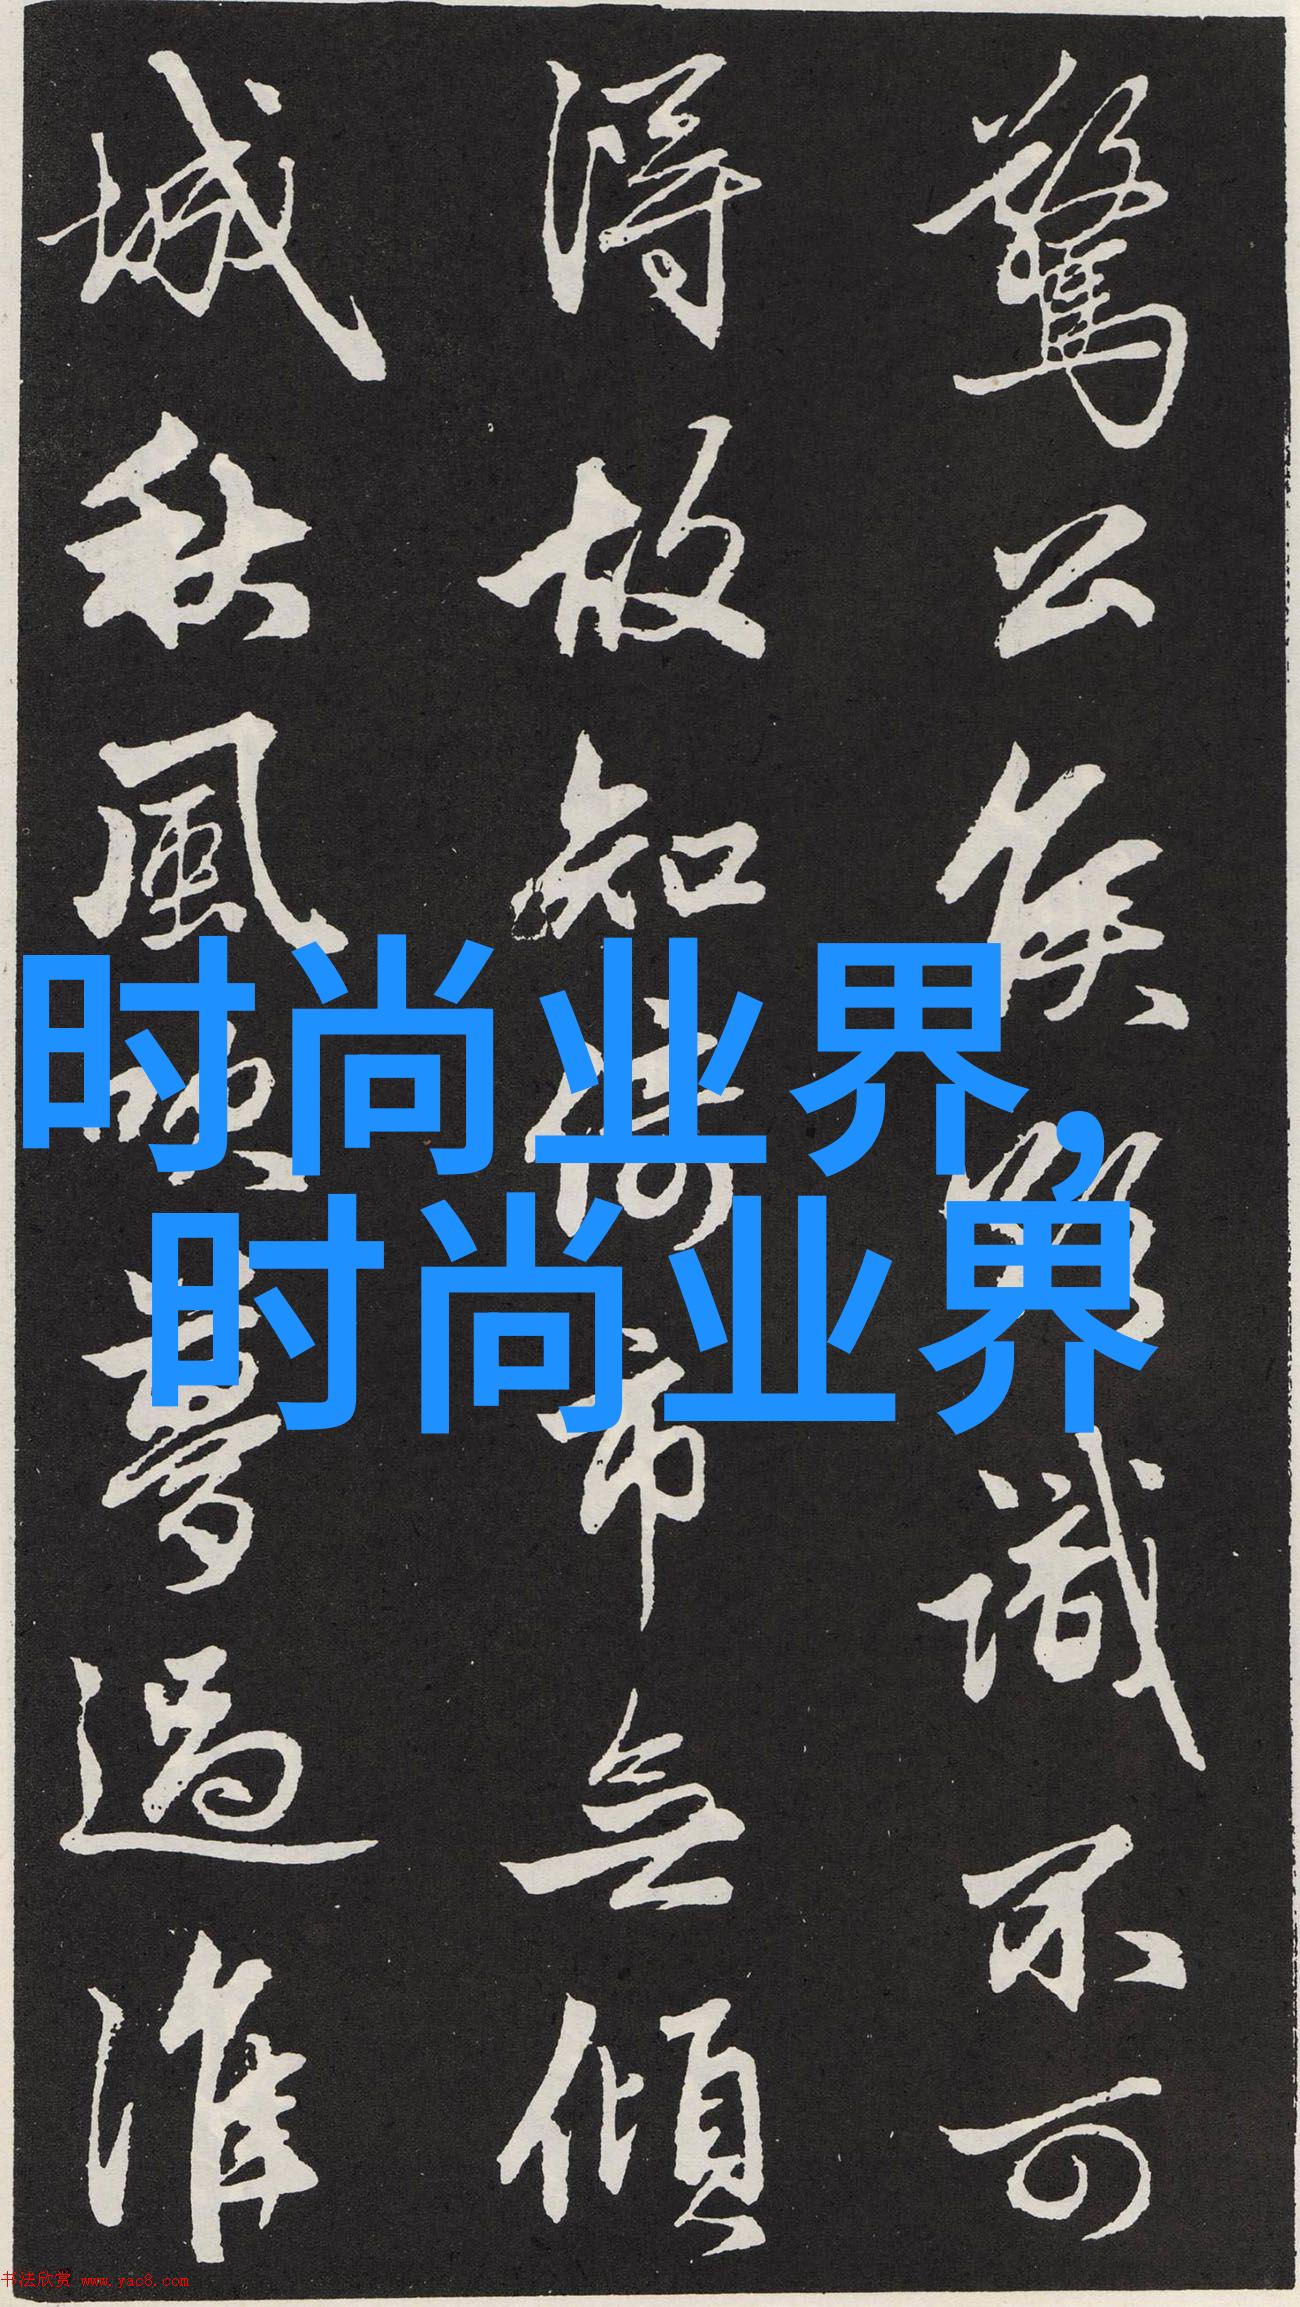 驚公侯識不可
得故知倚市無傾
城秋風吹夢過淮
时尚业界，
时尚业界
书法欣赏 www.yac8.com